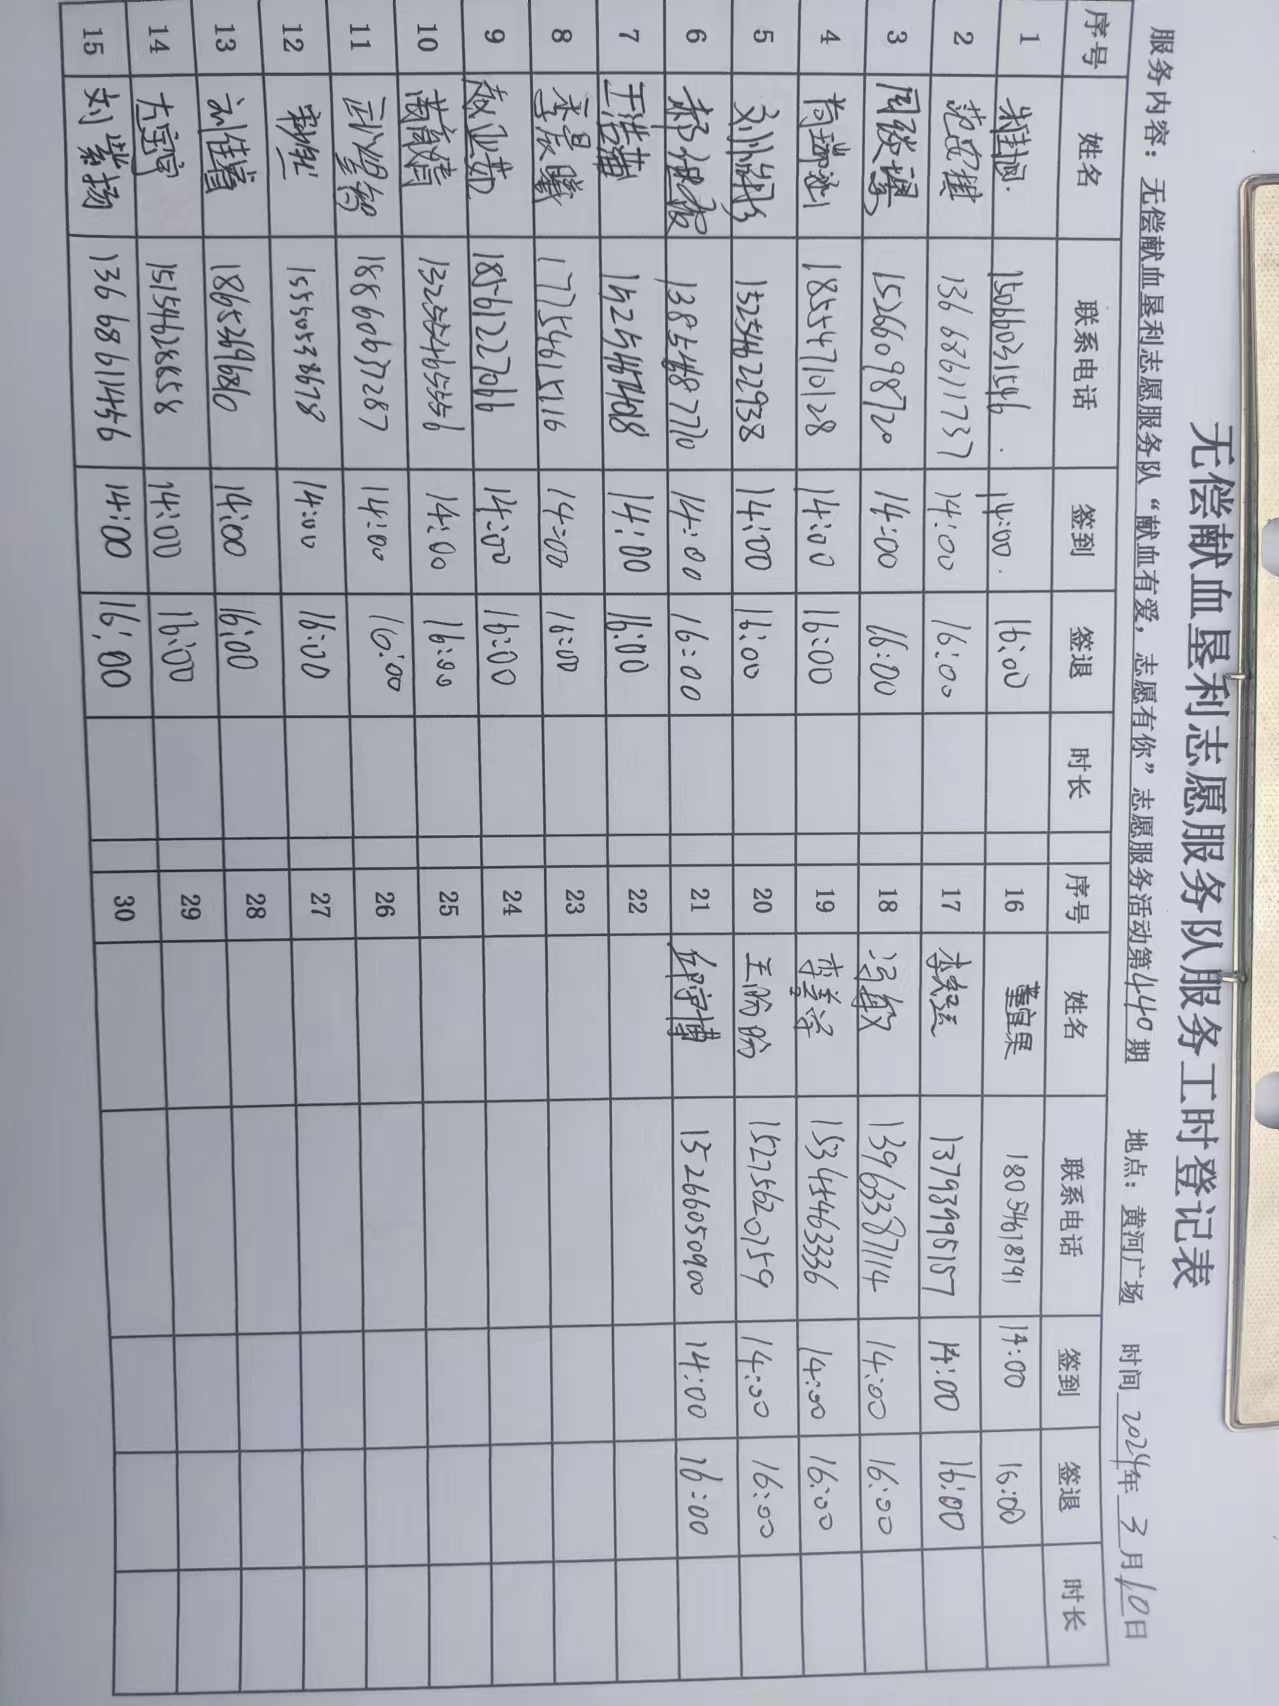 无偿献血垦利志愿服务队服务工时登记表
服务内容：无偿献血垦利志愿服务队“献血有爱，志愿有你”志愿服务活动第440期 地点：黄河广场 时间2024年3月10日
序号 姓名 联系电话 签到 签退 时长 序号 姓名 联系电话 签到 签退 时长
1 15066031546 14:00 16:00 16 董宜果 18054618791 14:00 16:00
2 13668611737 14:00 16:00 17 13793995157 14:00 16:00
3 15266098720 14:00 16:00 18 冯敏 13963387114 14:00 16:00
4 18554710128 14:00 16:00 19 李兰芳 15345463336 14:00 16:00
5 15254622938 14:00 16:00 20 王盼盼 15275620759 14:00 16:00
6 13854687770 14:00 16:00 21 15266050900 14:00 16:00
7 王浩菁 14:00 16:00 22
8 李晨曦 17754615716 14:00 16:00 23
9 18561227066 14:00 16:00 24
10 黄育倩 13255465556 14:00 16:00 25
11 18860637287 14:00 16:00 26
12 15550538678 14:00 16:00 27
13 刘佳睿 18653696810 14:00 16:00 28
14 15154628858 14:00 16:00 29
15 刘紫扬 13668611456 14:00 16:00 30